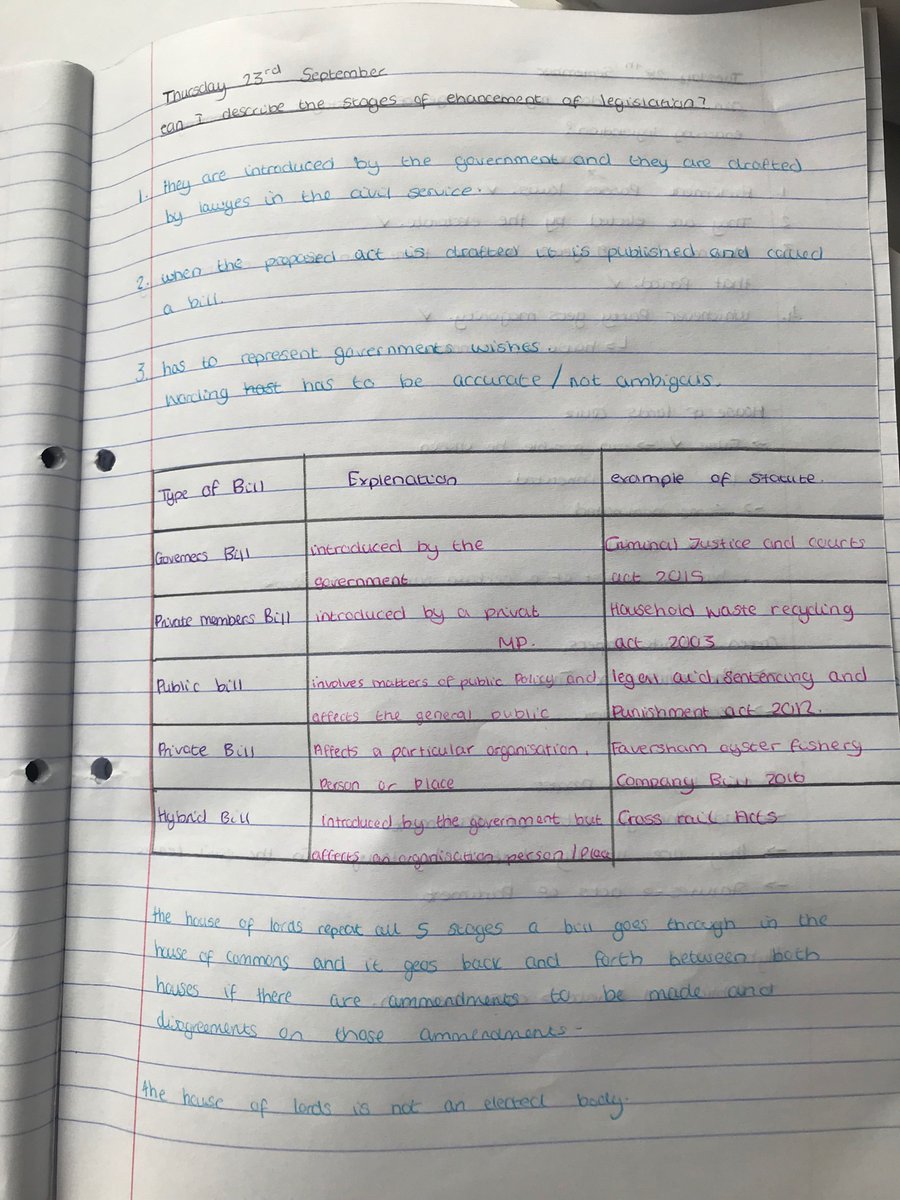 Thursday 23rd September
can I describe the stages of enhancement of legislation?
1. they are introduced by the government and they are drafted
by lawyes in the civil service.
2. when the proposed act is drafted it is published and called
a bill.
3. has to represent governments wishes.
wording hast has to be accurate / not ambigous.
Type of Bill Explenation example of statute.
Governers Bill introduced by the government Criminal Justice and courts act 2015
Private members Bill introduced by a privat MP. Household waste recycling act 2003
Public bill involves matters of public Policy and affects the general public legal aid, sentencing and Punishment act 2012.
Private Bill Affects a particular organisation, Person or place Faversham oyster fishery Company Bill 2016
Hybrid Bill Introduced by the government but affects an organisation person/place Cross rail Acts
the house of lords repeat all 5 stages a bill goes through in the
house of commons and it goes back and forth between both
houses if there are ammendments to be made and
disgreements on those ammendments.
the house of lords is not an elected body.